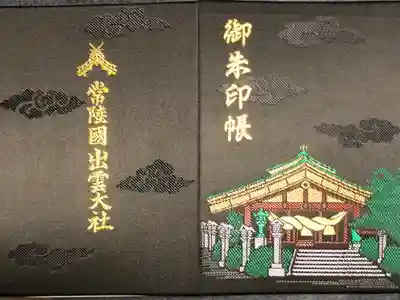 御朱印帳
常陸國出雲大社